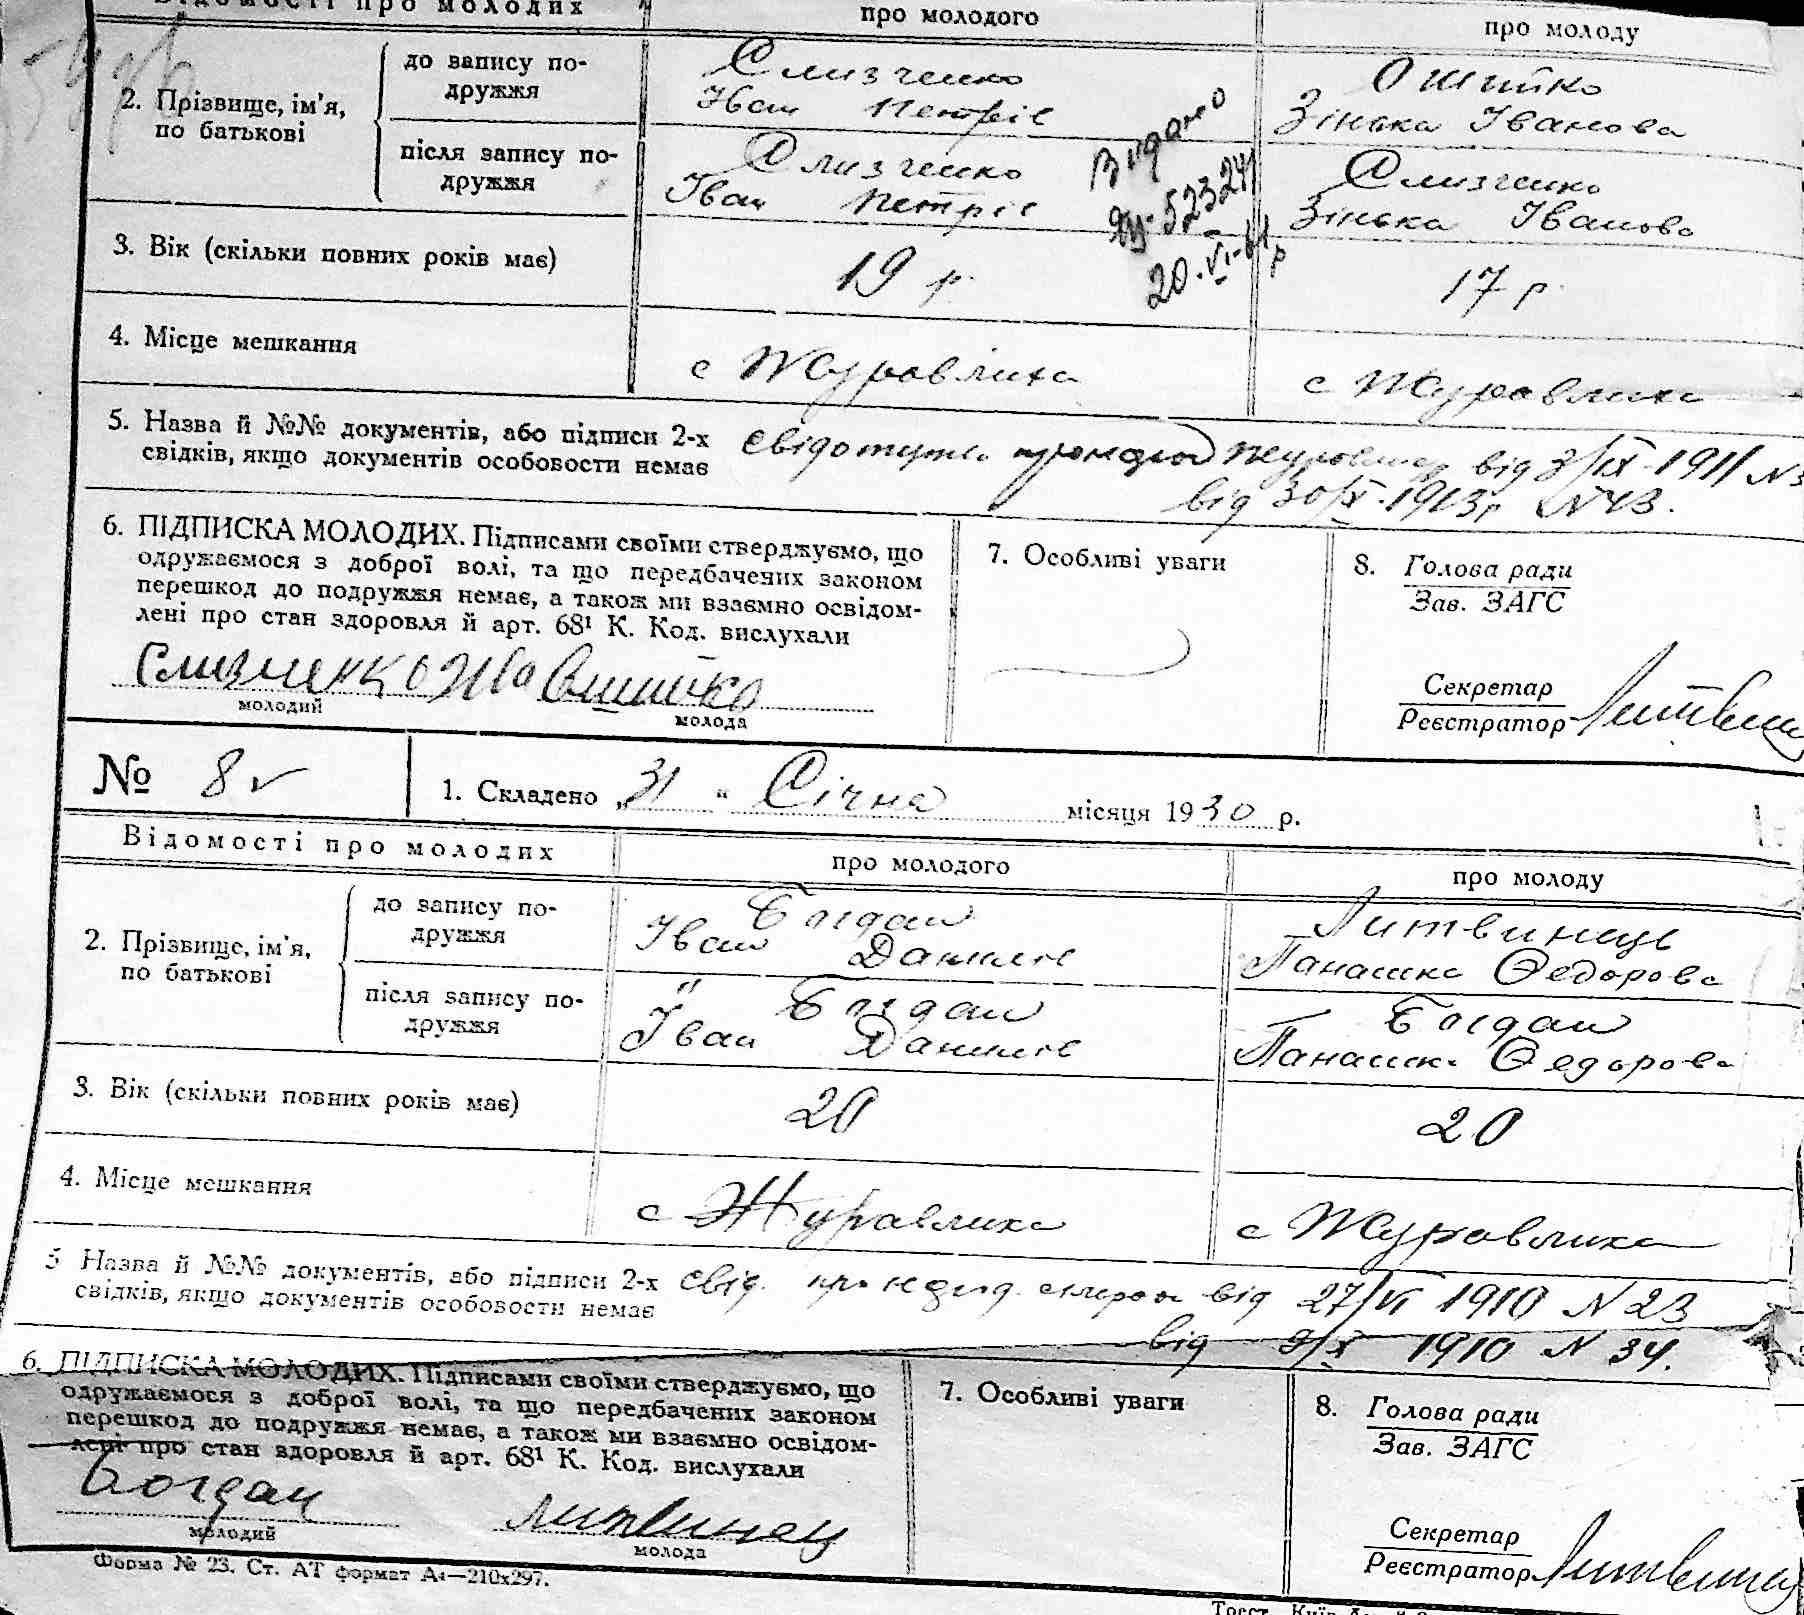 Відомості про молодих про молодого про молоду
2. Прізвище, ім'я, по батькові
до запису по-
дружжя
Слизченко
Іван Петрів
Ошийко
Зінька Іванова
після запису по-
дружжя
Слизченко
Іван Петрів
Слизченко
Зінька Іванова
Видано
523241
20.VI-61 р
3. Вік (скільки повних років має) 19 р. 17 р.
4. Місце мешкання с Журавлиха с Журавлиха
5. Назва й №№ документів, або підписи 2-х
свідків, якщо документів особовости немає
від 3/IX-1911 N3
від 30/X-1913р N43.
6. ПІДПИСКА МОЛОДИХ. Підписами своїми стверджуємо, що
одружаємося з доброї волі, та що передбачених законом
перешкод до подружжя немає, а також ми взаємно освідом-
лені про стан здоровля й арт. 68¹ К. Код. вислухали
Слизченко Ошийко
молодий молода
7. Особливі уваги
8. Голова ради
Зав. ЗАГС
Секретар
Реєстратор
№ 8 1. Складено „31" Січня місяця 1930 р.
Відомості про молодих про молодого про молоду
2. Прізвище, ім'я,
по батькові
до запису по-
дружжя
Богдан
Іван Данилів
Литвинець
Панашка Федорова
після запису по-
дружжя
" Богдан
Іван Данилів
Богдан
Панашка Федорова
3. Вік (скільки повних років має) 20 20
4. Місце мешкання с Журавлиха с Журавлиха
5 Назва й №№ документів, або підписи 2-х
свідків, якщо документів особовости немає
свід. про від 27/VI 1910 N 23
від 9/X 1910 N 34.
6. ПІДПИСКА МОЛОДИХ. Підписами своїми стверджуємо, що
одружаємося з доброї волі, та що передбачених законом
перешкод до подружжя немає, а також ми взаємно освідом-
лені про стан здоровля й арт. 68¹ К. Код. вислухали
Богдан Литвинец
молодий молода
7. Особливі уваги
8. Голова ради
Зав. ЗАГС
Секретар
Реєстратор
Форма № 23. Ст. АТ формат А4—210х297.